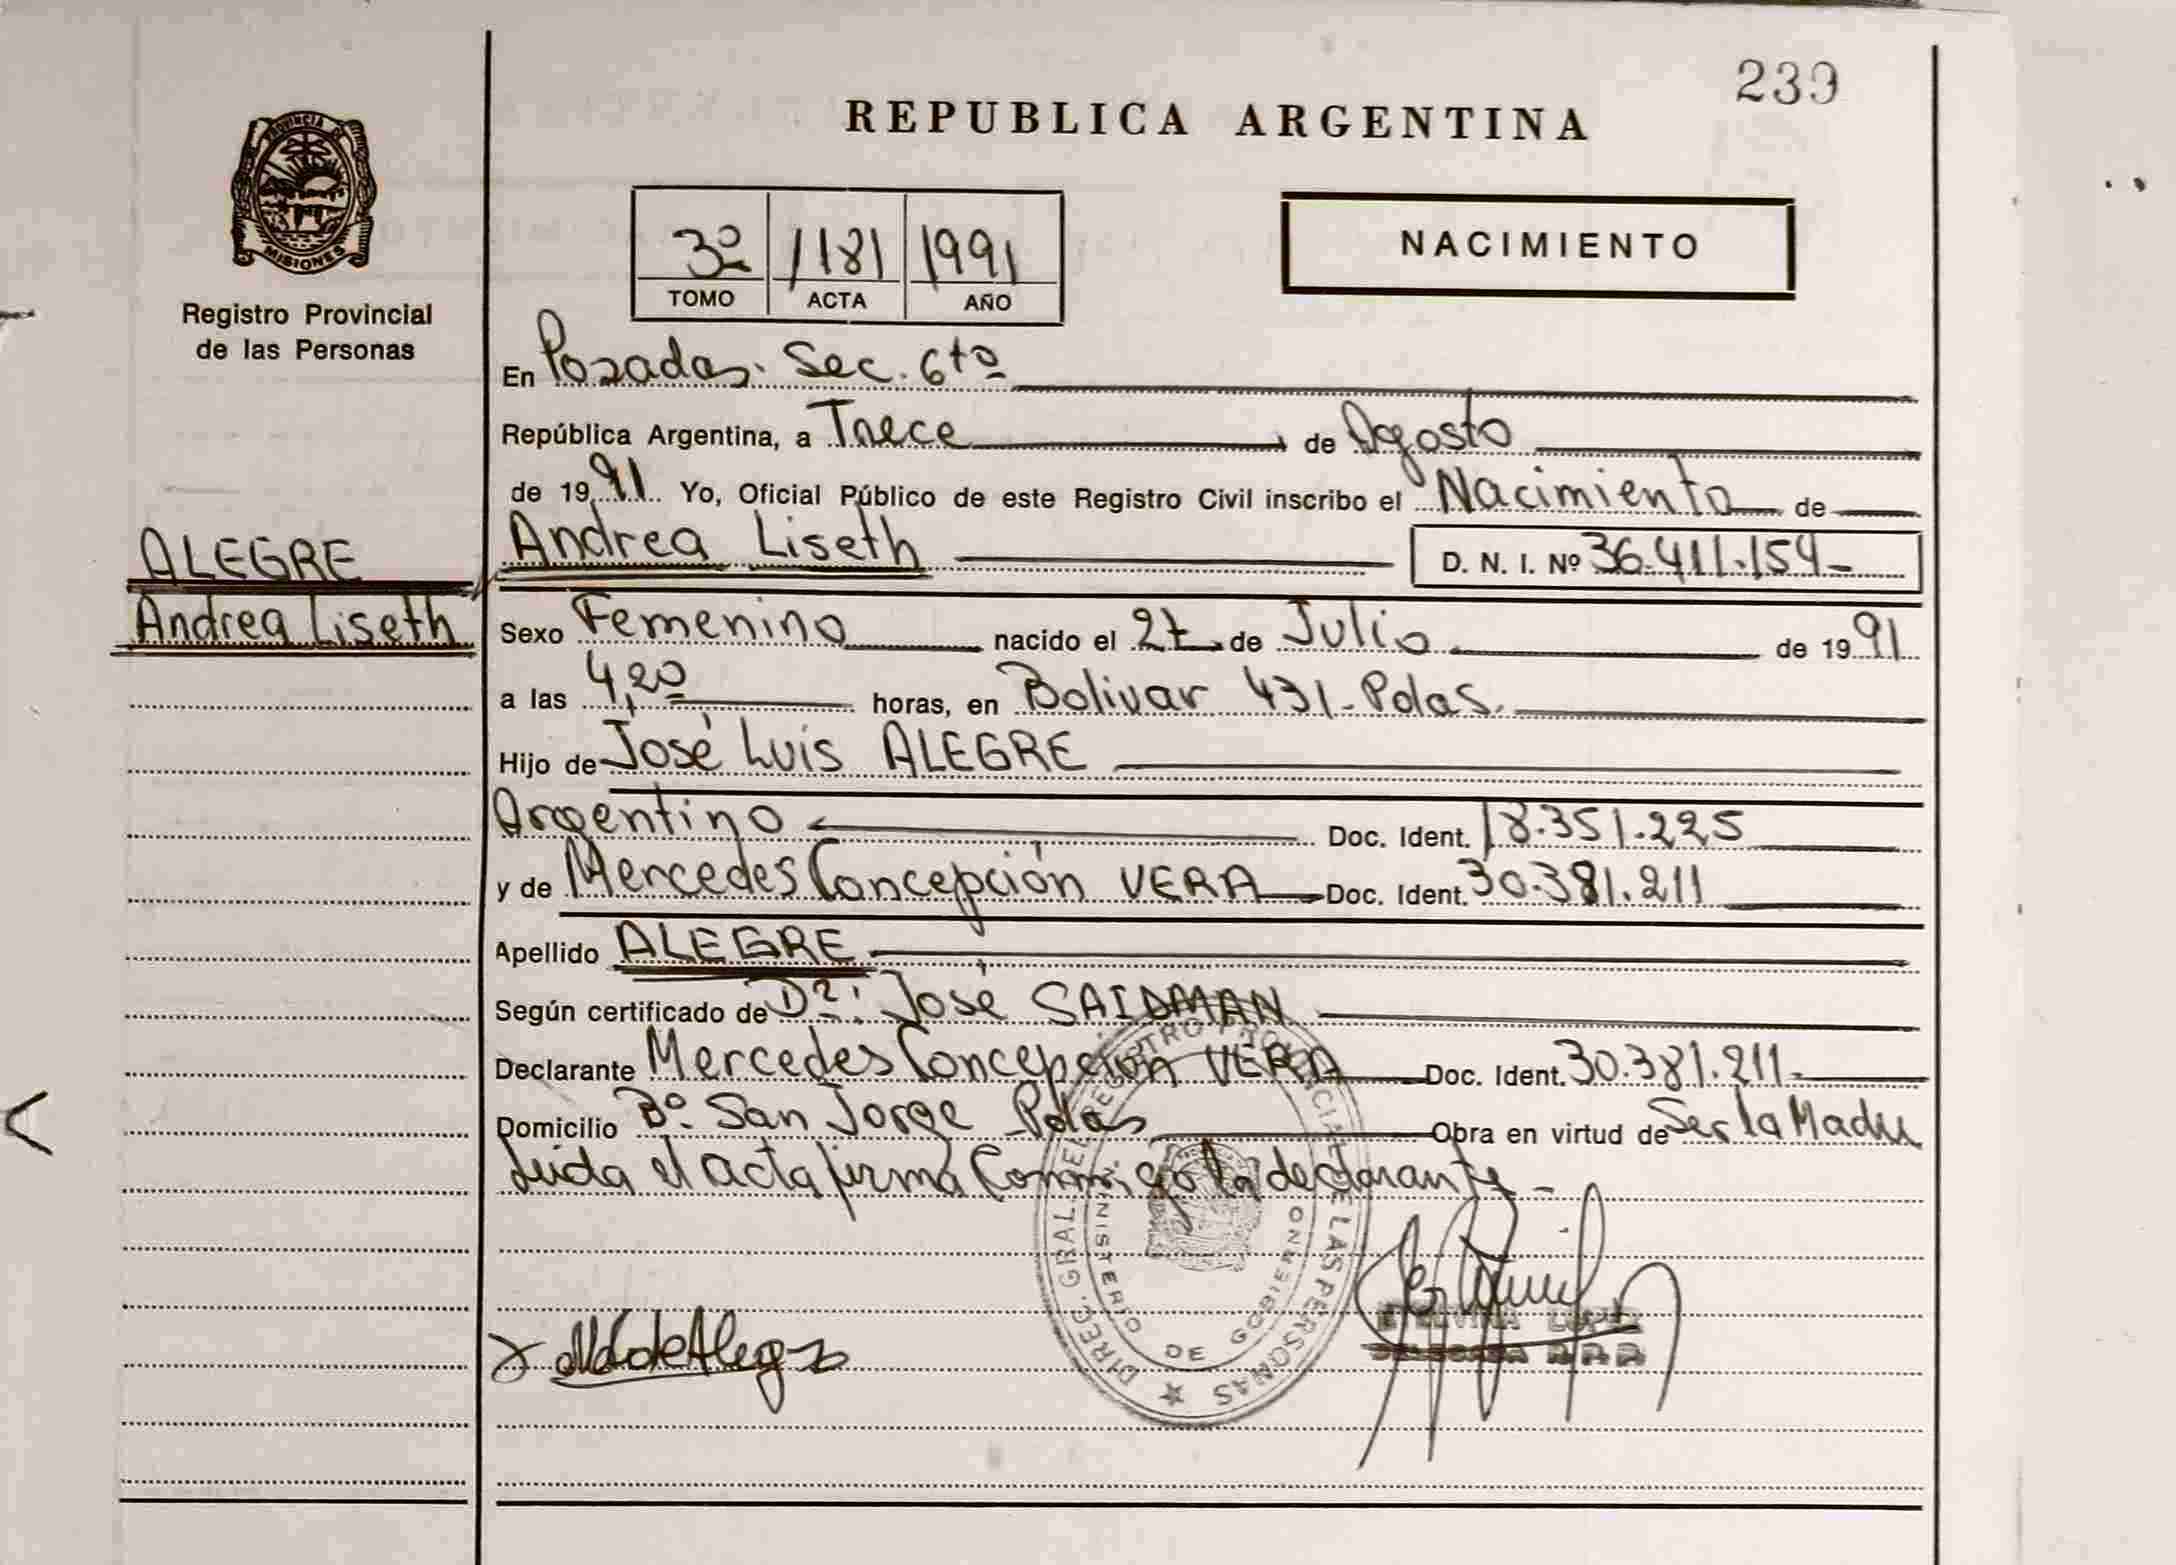 239
REPUBLICA ARGENTINA
PROVINCIA DE
MISIONES
Registro Provincial
de las Personas
3º 1181 1991
TOMO ACTA AÑO
NACIMIENTO
En Posadas. Sec. 6ta
República Argentina, a Trece de Agosto
de 1991 Yo, Oficial Público de este Registro Civil inscribo el Nacimiento de
ALEGRE
Andrea Liseth
Andrea Liseth D. N. I. Nº 36.411.154
Sexo Femenino nacido el 27 de Julio de 1991
a las 4,20 horas, en Bolivar 431-Pdas.
Hijo de José Luis ALEGRE
Argentino Doc. Ident. 18.351.225
y de Mercedes Concepción VERA Doc. Ident. 30.381.211
Apellido ALEGRE
Según certificado de Dr: José SAIDMAN
Declarante Mercedes Concepción VERA Doc. Ident. 30.381.211
Domicilio Bº. San Jorge Pdas Obra en virtud de Ser la Madre
Leida el acta firma Conmigo la declarante
DIREC. GRAL. DEL REGISTRO PROVINCIAL DE LAS PERSONAS
MINISTERIO DE GOBIERNO
de Alegre
LOPEZ